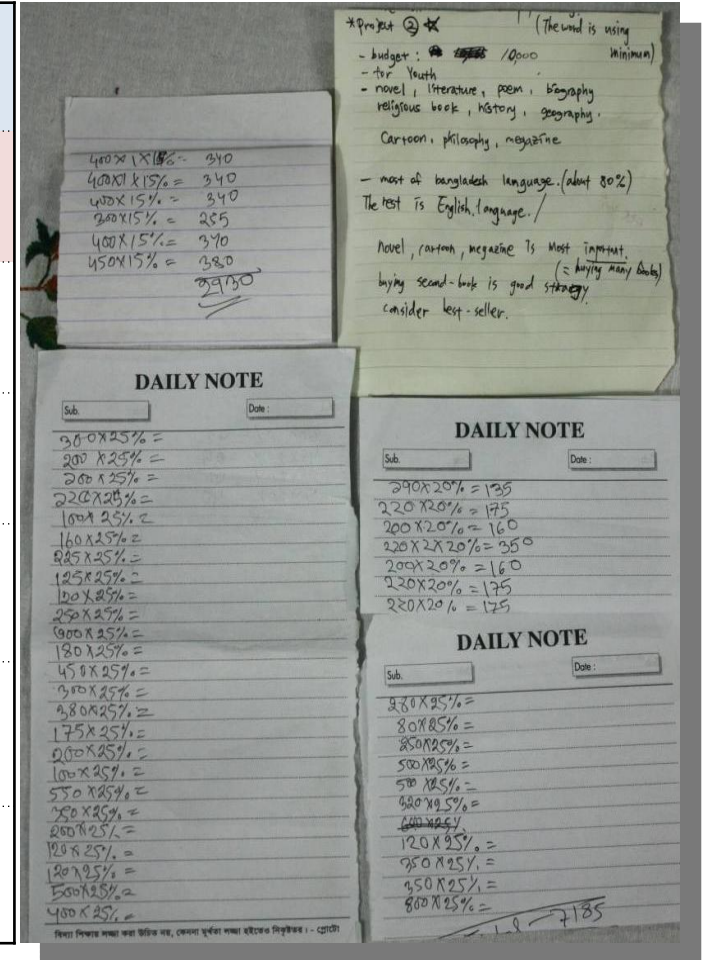 *Project ② ☆
(The word is using minimum)
- budget : 10,000
- for Youth
- novel, literature, poem, biography
religious book, history, geography.
Cartoon, philosophy, megazine
- most of bangladesh language. (about 80%)
The rest is English. language. /
novel, cartoon, megazine is most important.
(= buying many books)
buying second-book is good strategy.
consider best-seller.
400×1×15%- 340
400×1×15% = 340
400×15% = 340
300×15% = 255
400×15% = 340
450×15% = 380
2930
DAILY NOTE
Sub. Date :
380×25% =
200×25% =
200×25% =
220×25% =
100×25% =
160×25% =
225×25% =
125×25% =
120×25% =
250×25% =
×25% =
180×25% =
450×25% =
300×25% =
380×25% =
175×25% =
200×25% =
100×25% =
550×25% =
350×25% =
200×25% =
120×25% =
120×25% =
500×25% =
400×25% =
বিদ্যা শিক্ষায় লজ্জা করা উচিত নয়, কেননা মূর্খতা লজ্জা হইতেও নিকৃষ্টতর। - প্লেটো
DAILY NOTE
Sub. Date :
×20% = 135
220×20% = 175
200×20% = 160
220×2×20% = 350
200×20% = 160
220×20% = 175
220×20% = 175
DAILY NOTE
Sub. Date :
280×25% =
80×25% =
250×25% =
500×25% =
500×25% =
320×25% =
120×25% =
350×25% =
350×25% =
800×25% =
7185